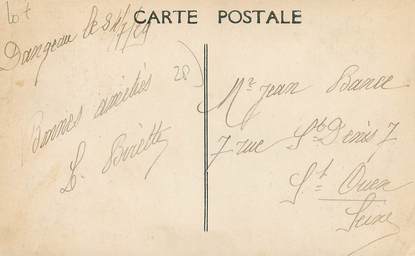 lot
CARTE POSTALE
Dangeau le 31/7/29
28
Bonnes amitiés
Mr Jean Bance
7 rue St Denis 7
St Ouen
Seine